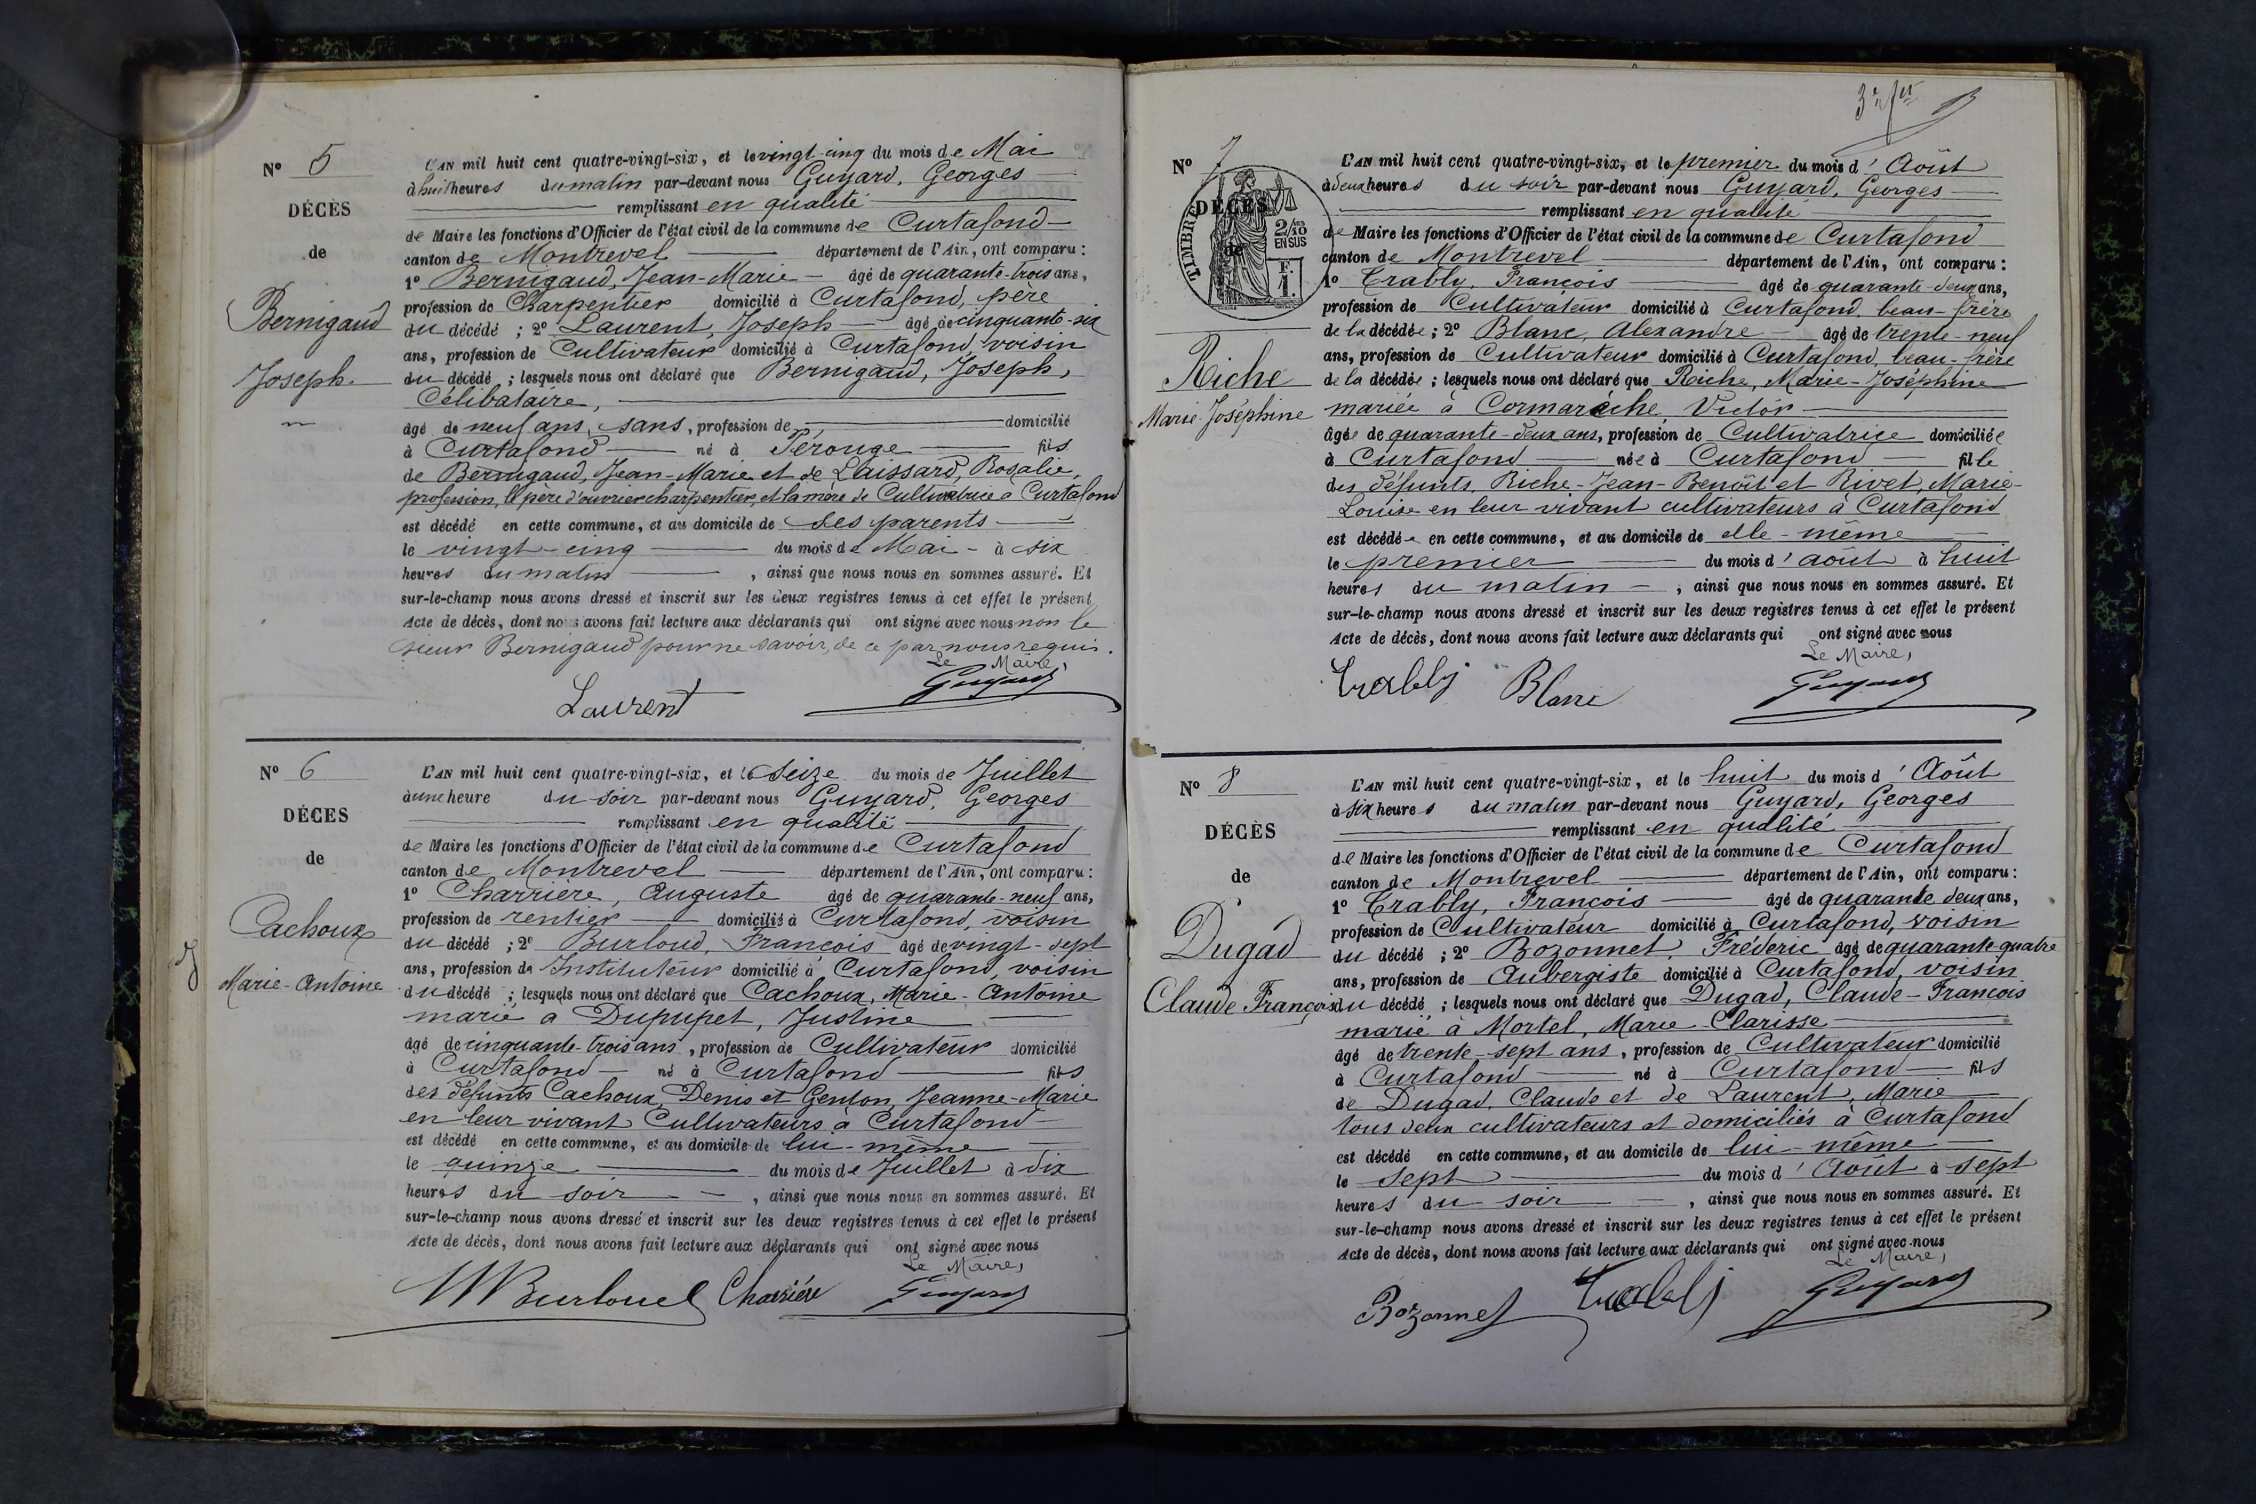 N° 5
DÉCÈS
de
Bernigaud
Joseph
L'AN mil huit cent quatre-vingt-six, et le vingt-cinq du mois de Mai
à huit heures du matin par-devant nous Guyard, Georges
remplissant en qualité
de Maire les fonctions d'Officier de l'état civil de la commune de Curtafond
canton de Montrevel département de l'Ain, ont comparu :
1° Bernigaud, Jean-Marie âgé de quarante-trois ans,
profession de Charpentier domicilié à Curtafond, père
du décédé ; 2° Laurent, Joseph âgé de cinquante-six
ans, profession de Cultivateur domicilié à Curtafond, voisin
du décédé ; lesquels nous ont déclaré que Bernigaud, Joseph,
Célibataire,
âgé de neuf ans, sans, profession de domicilié
à Curtafond né à Pérouge fils
de Bernigaud, Jean-Marie et de Laissard, Rosalie,
profession, le père d'ouvrier charpentier, et la mère de Cultivatrice à Curtafond
est décédé en cette commune, et au domicile de ses parents
le vingt-cinq du mois de Mai - à six
heures du matin , ainsi que nous nous en sommes assuré. Et
sur-le-champ nous avons dressé et inscrit sur les deux registres tenus à cet effet le présent
Acte de décès, dont nous avons fait lecture aux déclarants qui ont signé avec nous non le
sieur Bernigaud pour ne savoir, de ce par nous requis.
Le Maire,
Laurent Guyard
N° 6
DÉCÈS
de
Cachoux
Marie-Antoine
L'AN mil huit cent quatre-vingt-six, et le Seize du mois de Juillet
à une heure du soir par-devant nous Guyard, Georges
remplissant en qualité
de Maire les fonctions d'Officier de l'état civil de la commune de Curtafond
canton de Montrevel département de l'Ain, ont comparu :
1° Charrière, Auguste âgé de quarante-neuf ans,
profession de rentier domicilié à Curtafond, voisin
du décédé ; 2° Burloud, François âgé de vingt-sept
ans, profession de Instituteur domicilié à Curtafond, voisin
du décédé ; lesquels nous ont déclaré que Cachoux, Marie-Antoine
marié à Dupupet, Justine
âgé de cinquante-trois ans, profession de Cultivateur domicilié
à Curtafond né à Curtafond fils
des défunts Cachoux, Denis et Genton, Jeanne-Marie
en leur vivant Cultivateurs à Curtafond
est décédé en cette commune, et au domicile de lui-même
le quinze du mois de Juillet à dix
heures du soir , ainsi que nous nous en sommes assuré. Et
sur-le-champ nous avons dressé et inscrit sur les deux registres tenus à cet effet le présent
Acte de décès, dont nous avons fait lecture aux déclarants qui ont signé avec nous
Le Maire,
Burloud Charrière Guyard
N° 7
TIMBRE
2/10
EN SUS
DÉCÈS
de
Riche
Marie-Joséphine
L'AN mil huit cent quatre-vingt-six, et le premier du mois d'Août
à deux heures du soir par-devant nous Guyard, Georges
remplissant en qualité
de Maire les fonctions d'Officier de l'état civil de la commune de Curtafond
canton de Montrevel département de l'Ain, ont comparu :
1° Trably, François âgé de quarante-deux ans,
profession de Cultivateur domicilié à Curtafond, beau-frère
de la décédée ; 2° Blanc, Alexandre âgé de trente-neuf
ans, profession de Cultivateur domicilié à Curtafond, beau-frère
de la décédée ; lesquels nous ont déclaré que Riche, Marie-Joséphine
mariée à Cormarèche Victor
âgée de quarante-deux ans, profession de Cultivatrice domiciliée
à Curtafond née à Curtafond fille
des défunts, Riche-Jean-Benoît et Rivet, Marie-
Louise en leur vivant cultivateurs à Curtafond
est décédée en cette commune, et au domicile de elle-même
le premier du mois d'août à huit
heures du matin , ainsi que nous nous en sommes assuré. Et
sur-le-champ nous avons dressé et inscrit sur les deux registres tenus à cet effet le présent
Acte de décès, dont nous avons fait lecture aux déclarants qui ont signé avec nous
Le Maire,
Trably Blanc Guyard
N° 8
DÉCÈS
de
Dugad
Claude François
L'AN mil huit cent quatre-vingt-six, et le huit du mois d'Août
à six heures du matin par-devant nous Guyard, Georges
remplissant en qualité
de Maire les fonctions d'Officier de l'état civil de la commune de Curtafond
canton de Montrevel département de l'Ain, ont comparu :
1° Trably, François âgé de quarante deux ans,
profession de Cultivateur domicilié à Curtafond, voisin
du décédé ; 2° Bozonnet, Fréderic âgé de quarante-quatre
ans, profession de Aubergiste domicilié à Curtafond, voisin
du décédé ; lesquels nous ont déclaré que Dugad, Claude-François
marié à Mortel, Marie-Clarisse
âgé de trente-sept ans, profession de Cultivateur domicilié
à Curtafond né à Curtafond fils
de Dugad, Claude et de Laurent, Marie
tous deux cultivateurs et domiciliés à Curtafond
est décédé en cette commune, et au domicile de lui-même
le sept du mois d'Août à sept
heures du soir , ainsi que nous nous en sommes assuré. Et
sur-le-champ nous avons dressé et inscrit sur les deux registres tenus à cet effet le présent
Acte de décès, dont nous avons fait lecture aux déclarants qui ont signé avec nous
Le Maire,
Bozonnet Trably Guyard